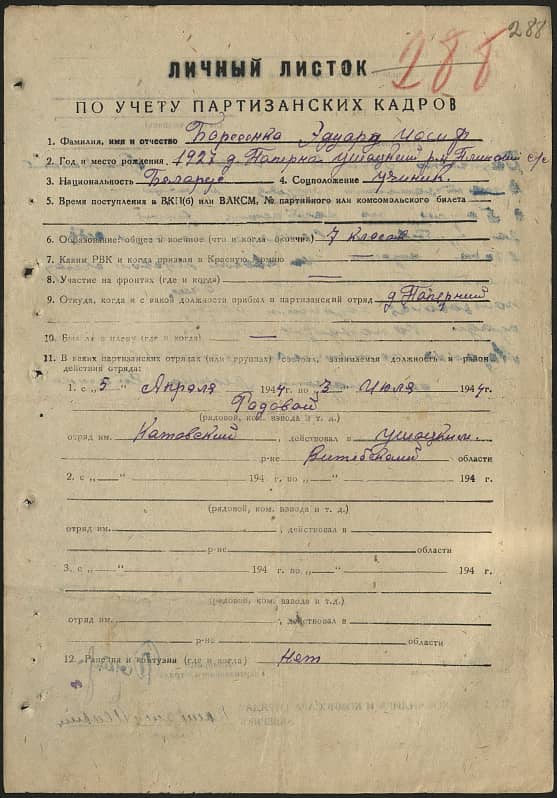 288
288
ЛИЧНЫЙ ЛИСТОК
ПО УЧЕТУ ПАРТИЗАНСКИХ КАДРОВ
1. Фамилия, имя и отчество Эдуард Иосиф
2. Год и место рождения 1927 д. Паперна Ушацкий р-н с/с
3. Национальность Беларус 4. Соцположение ученик
5. Время поступления в ВКП(б) или ВЛКСМ, № партийного или комсомольского билета
6. Образование: общее и военное (что и когда окончил) 7 класов
7. Каким РВК и когда призван в Красную Армию —
8. Участие на фронтах (где и когда) —
9. Откуда, когда и с какой должности прибыл в партизанский отряд д.
10. Был ли в плену (где и когда) —
11. В каких партизанских отрядах (или группах) состоял, занимаемая должность и район
действия отряда:
1. с „5“ Апреля 1944 г. по „3“ Июля 1944 г.
Радовой
(рядовой, ком. взвода и т. д.)
отряд им. Катовский, действовал в Ушацким
р-не Витебский области
2. с „ “ 194 г. по „ “ 194 г.
(рядовой, ком. взвода и т. д.)
отряд им. , действовал в
р-не области
3. с „ “ 194 г. по „ “ 194 г.
(рядовой, ком. взвода и т.д.)
отряд им. , действовал в
р-не области
12. Ранения и контузии (где и когда) Нет